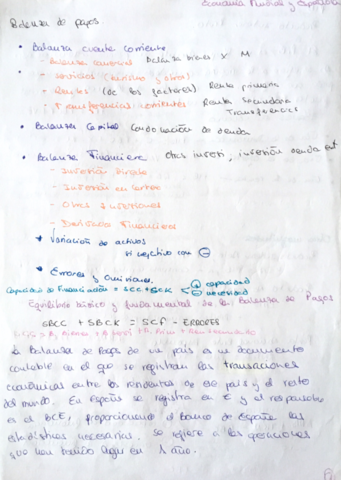 Economía Mundial y Española
Balanza de pagos
• Balanza cuenta corriente
- Balanza comercial Balanza bienes X M
- Servicios (turismo y otros)
- Rentas (de los factores) Renta primaria
- Transferencias corrientes Renta Secundaria
Transferencias
• Balanza Capital Condonación de deuda
• Balanza Financiera Otras inversi, inversión deuda ext
- Inversión directa
- Inversión en Cartera
- Otras inversiones
- Derivados Financieros
* Variación de activos
si negativo con -
* Errores y Omisiones.
Capacidad de Financiación = SCC + SCK + capacidad
- necesidad
Equilibrio básico y fundamental de la Balanza de Pagos
SBCC + SBCK = SCF - ERRORES
La Balanza de Pagos de un país es un documento
contable en el que se registran las transacciones
económicas entre los residentes de ese país y el resto
del mundo. En España se registra en € y el responsable
es el BCE, proporcionando el Banco de España las
estadísticas necesarias. Se refiere a las operaciones
que han tenido lugar en 1 año.